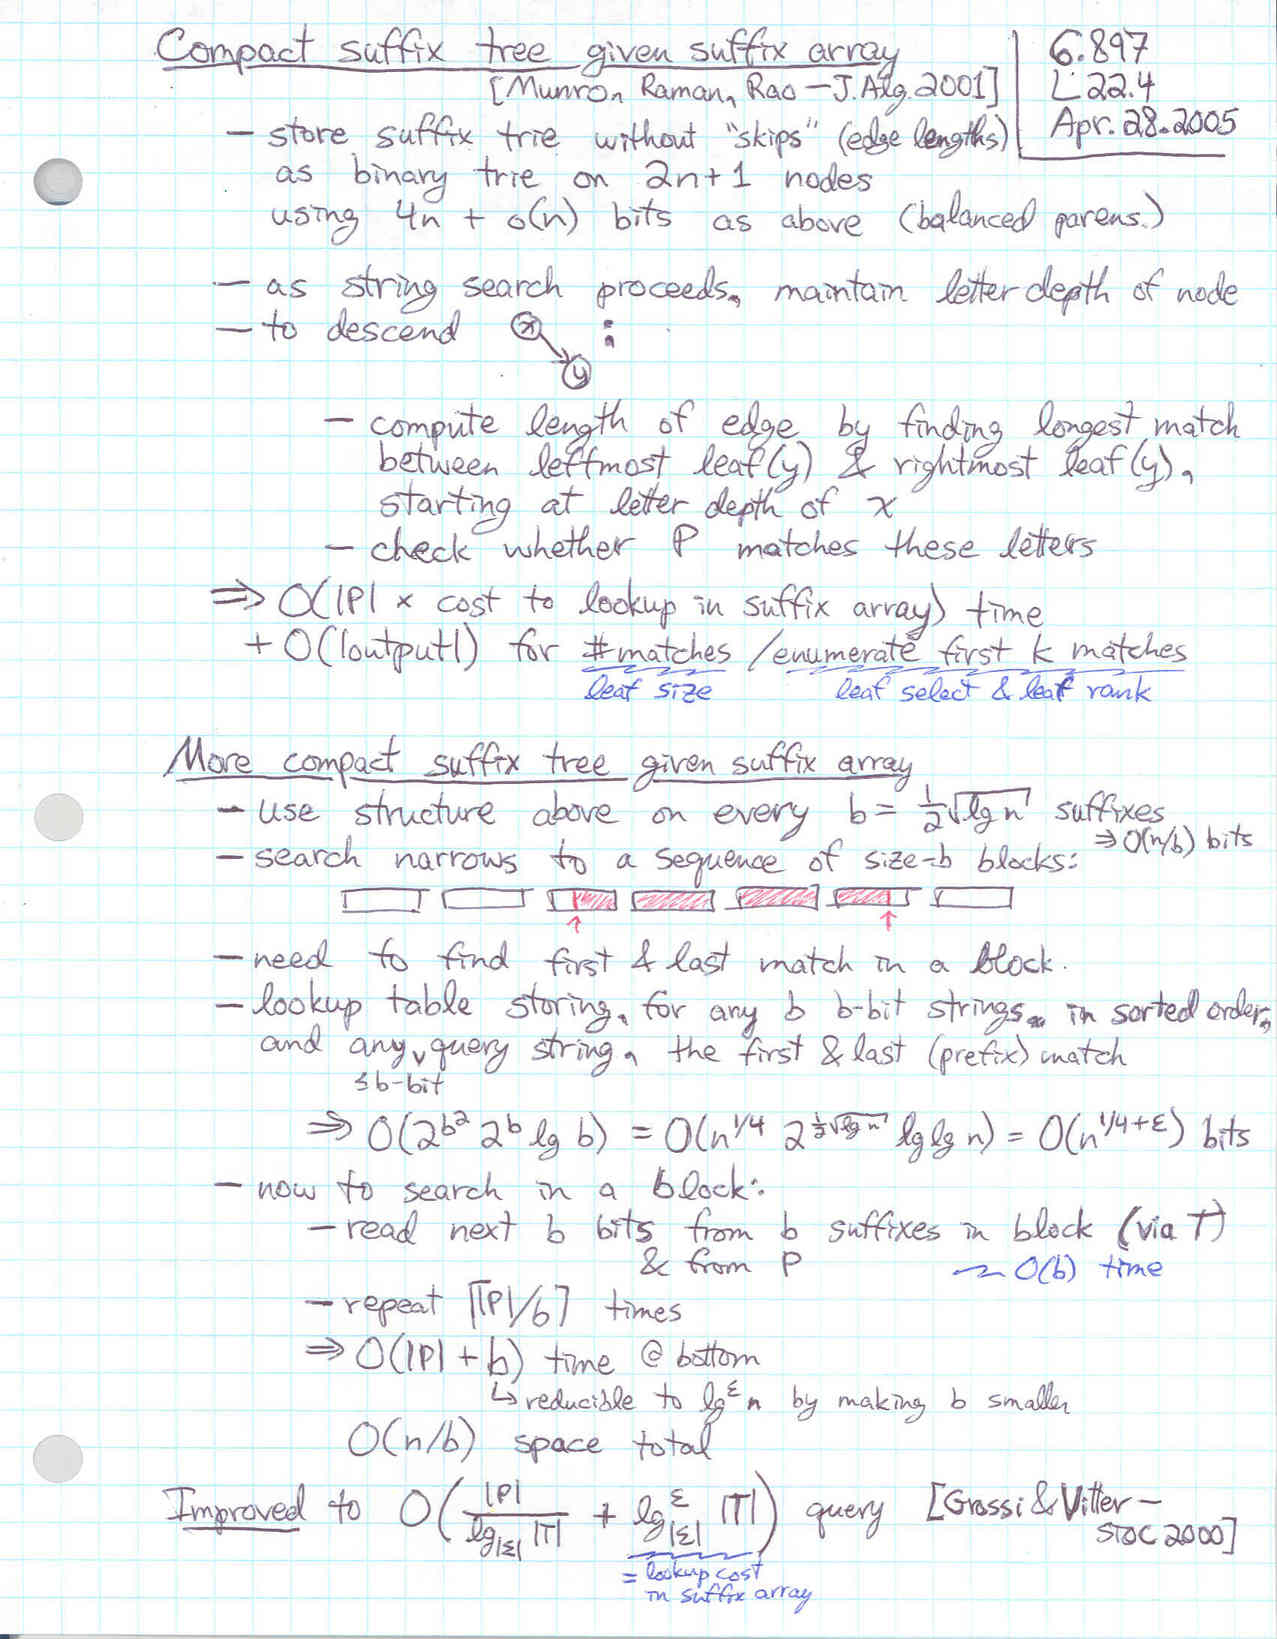 Compact suffix tree given suffix array
[Munro, Raman, Rao – J.Alg. 2001]
6.897
L22.4
Apr. 28. 2005
– store suffix trie without "skips" (edge lengths)
as binary trie on 2n+1 nodes
using 4n + o(n) bits as above (balanced parens.)
– as string search proceeds, maintain letter depth of node
– to descend x → y :
– compute length of edge by finding longest match
between leftmost leaf(y) & rightmost leaf(y),
starting at letter depth of x
– check whether P matches these letters
⇒ O(|P| × cost to lookup in suffix array) time
+ O(|output|) for #matches / enumerate first k matches
leaf size leaf select & leaf rank
More compact suffix tree given suffix array
– use structure above on every b = ½√lg n suffixes
⇒ O(n/b) bits
– search narrows to a sequence of size-b blocks:
– need to find first & last match in a block.
– lookup table storing, for any b b-bit strings, in sorted order,
and any ᵥ query string, the first & last (prefix) match
≤b-bit
⇒ O(2^{b²} 2^b lg b) = O(n^{1/4} 2^{½√lg n} lg lg n) = O(n^{1/4+ε}) bits
– now to search in a block:
– read next b bits from b suffixes in block (via T)
& from P ~ O(b) time
– repeat ⌈|P|/b⌉ times
⇒ O(|P| + b) time @ bottom
↳ reducible to lg^ε n by making b smaller
O(n/b) space total
Improved to O(|P| / lg_{|Σ|} |T| + lg^ε_{|Σ|} |T|) query [Grossi & Vitter –
STOC 2000]
= lookup cost
in suffix array